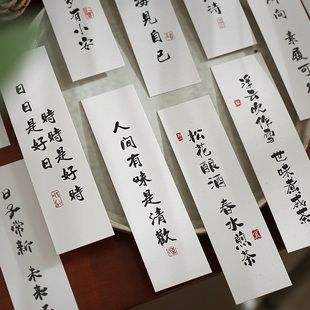 有小安
接見自己
詩
日日是好日
時時是好時
人间有味是清歡
松花酿酒
春水煎茶
浮云吹作雪
世味煮成茶
素履可
日子常新
未来